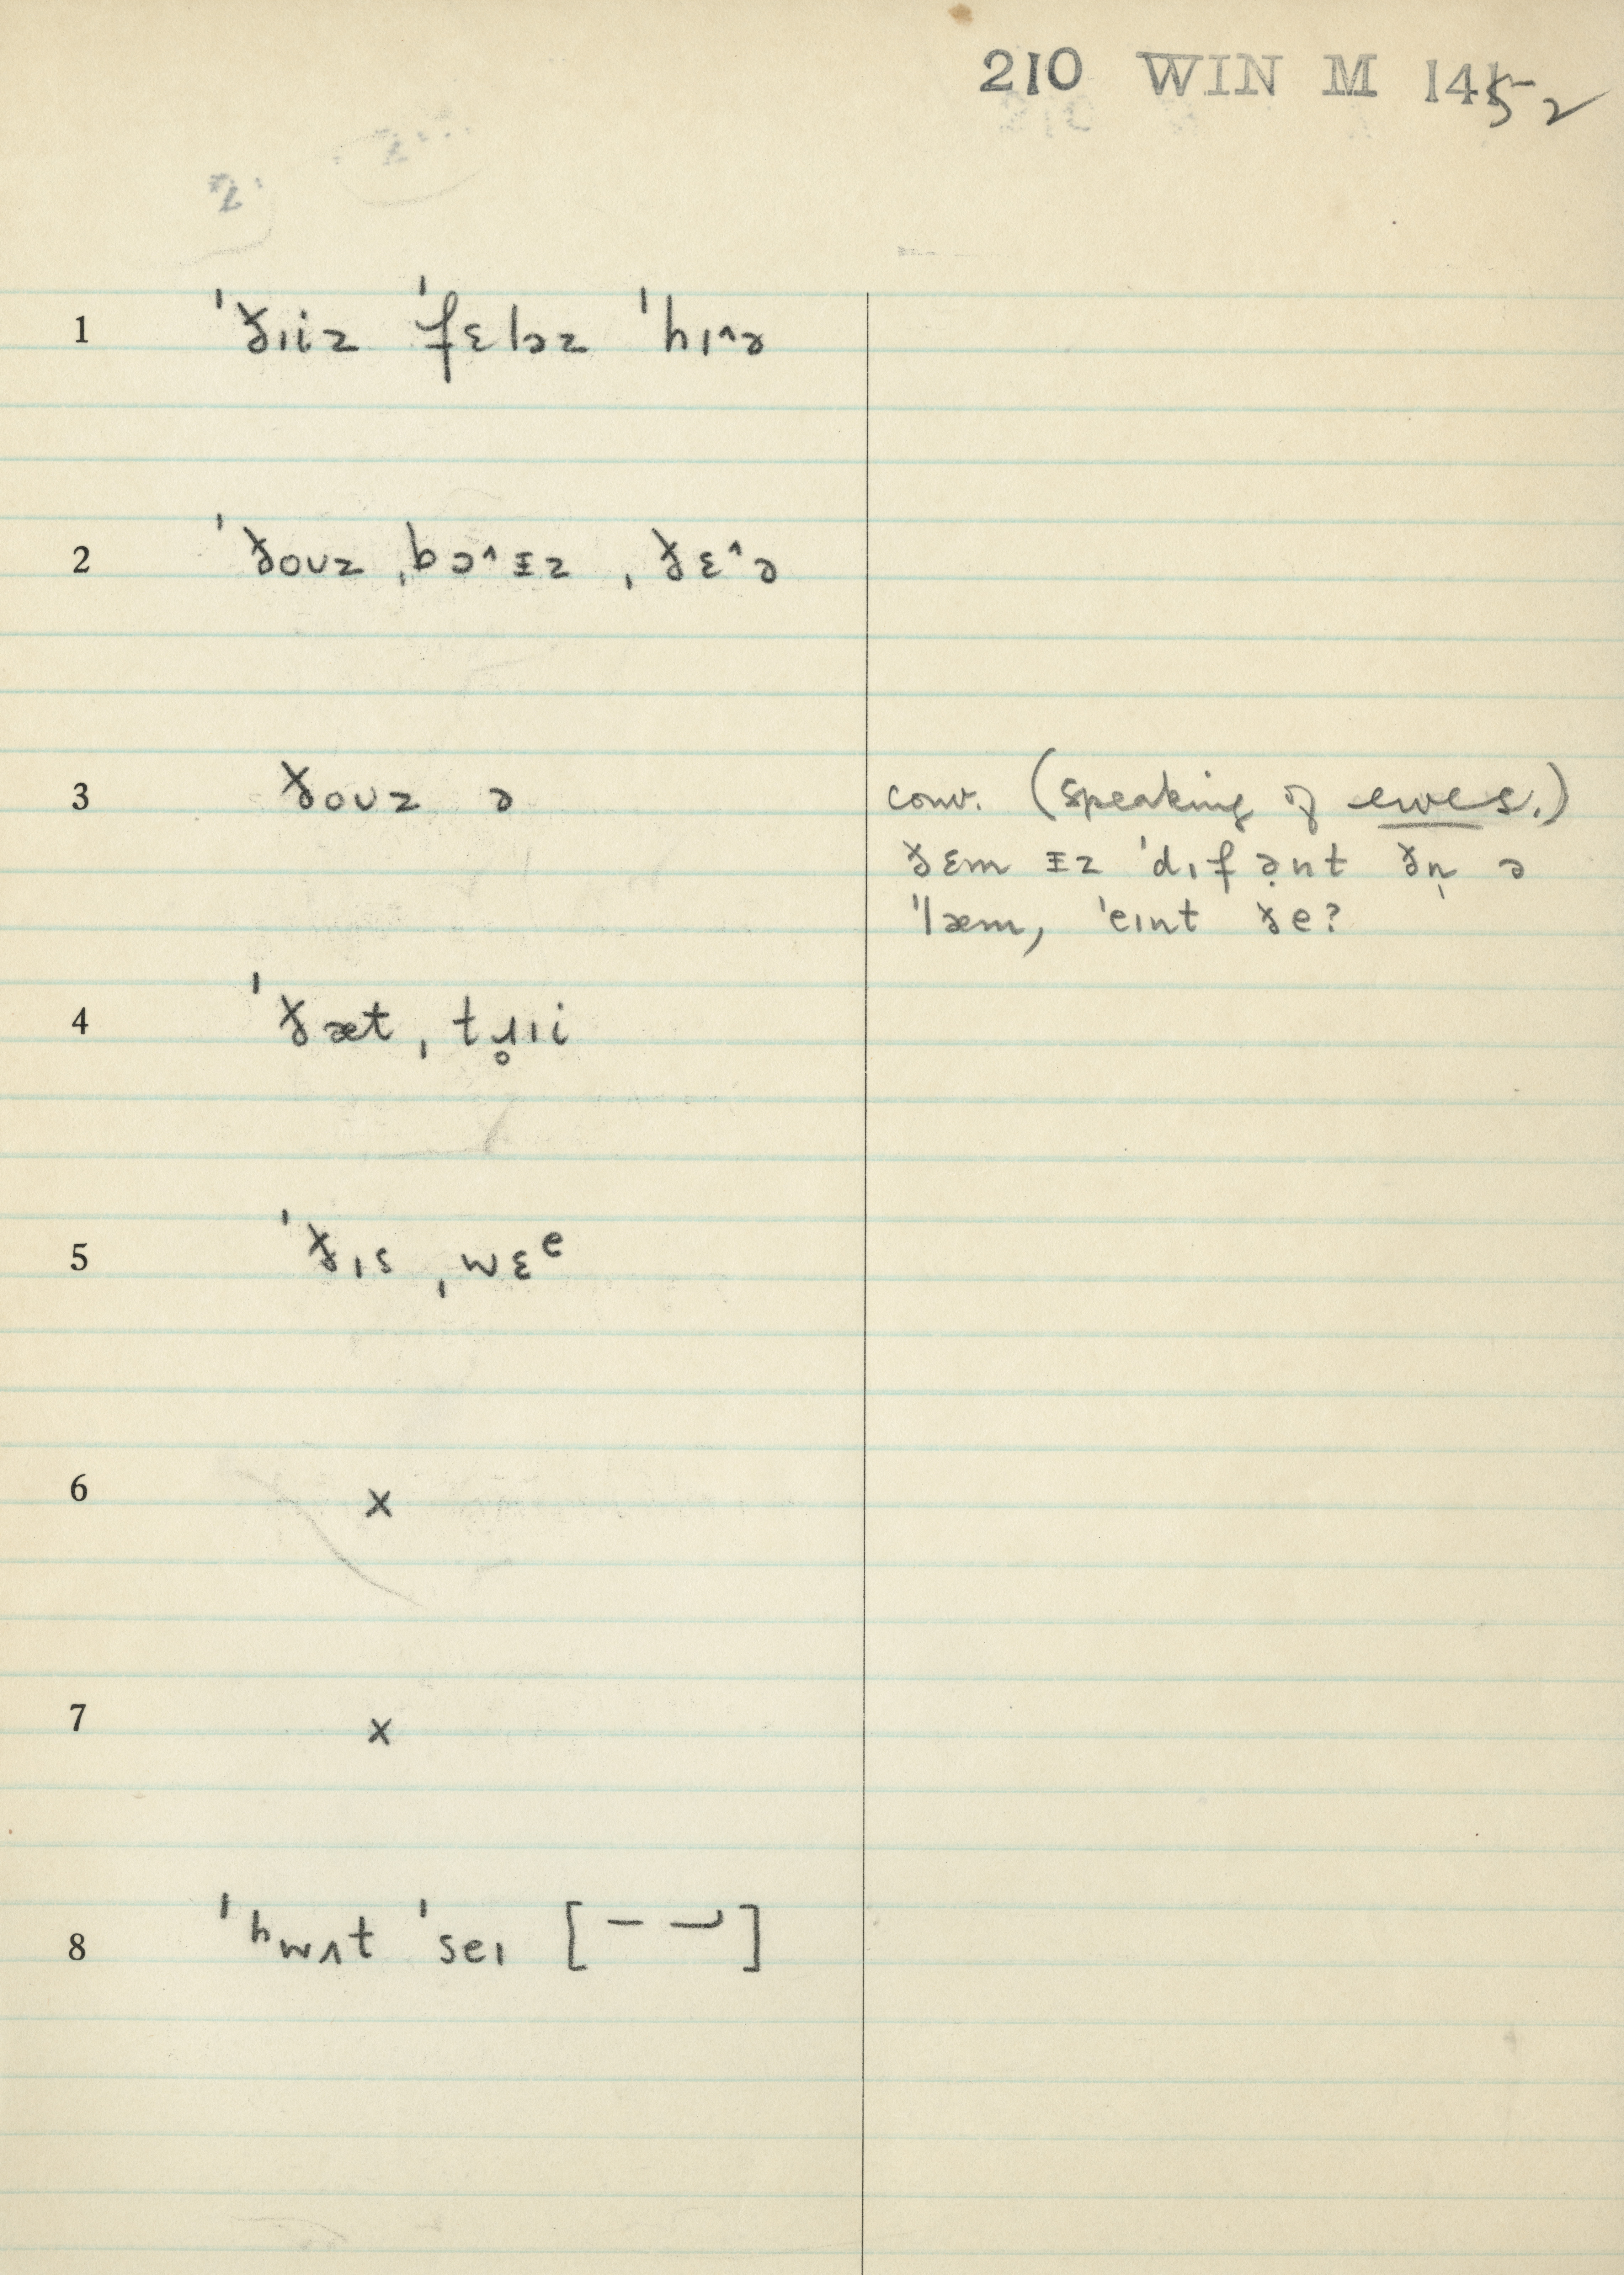 210 WIN M 1452
1 ˈðɪiz ˈfɛləz ˈhɪ^ə
2 ˈðoʊz ˌbɔ^ɪz ˌðɛ^ə
3 ðoʊz ə conv. (speaking of ewes.)
ðɛm ɪz ˈdɪfə̣nt ðn̩ ə
ˈlæm, ˈeɪnt ðe?
4 ˈðæt ˌtɹ̥ɪi
5 ˈðɪs ˌwɛᵉ
6 x
7 x
8 ˈʰwʌt ˈseɪ [‾ ‾⏌]